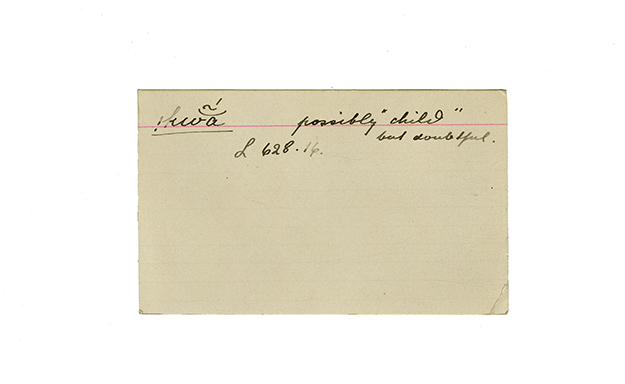 !kuwã̆́ possibly "child"
but doubtful.
L 628.16.